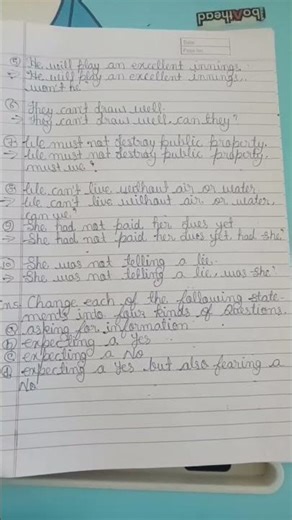 Date
⑤ He will play an excellent innings.
→ He will play an excellent innings,
won't he
⑥ They can't draw well.
→ They can't draw well, can they?
⑦ We must not destroy public property.
→ We must not destroy public property,
must we
⑧ We can't live without air or water
→ We can't live without air or water,
can we
⑨ She had not paid her dues yet
→ She had not paid her dues yet, had she
⑩ She was not telling a lie.
→ She was not telling a lie, was she?
Change each of the following state-
ments into four kinds of Questions.
ⓐ asking for information
ⓑ expecting a Yes
ⓒ expecting a No
ⓓ expecting a Yes but also fearing a
No